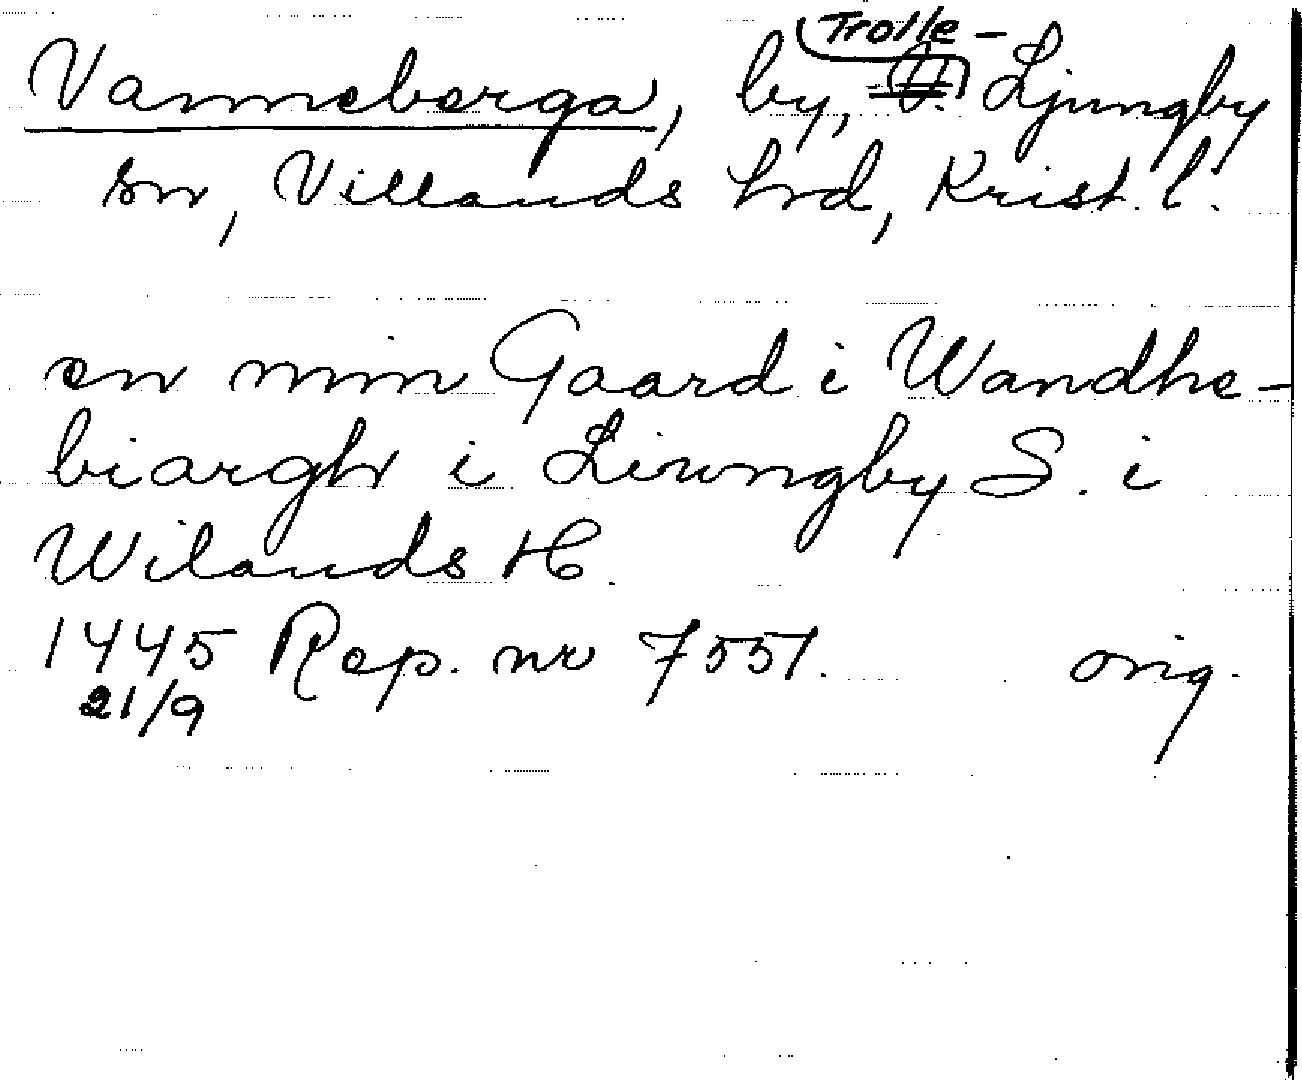 Vanneberga, by, Trolle-Ljungby
sn, Villands hrd, Krist. l.
en min Gaard i Wandhe-
biargh i Liwngby S. i
Wilands H.
1445 Rep. nr 7551. orig.
21/9